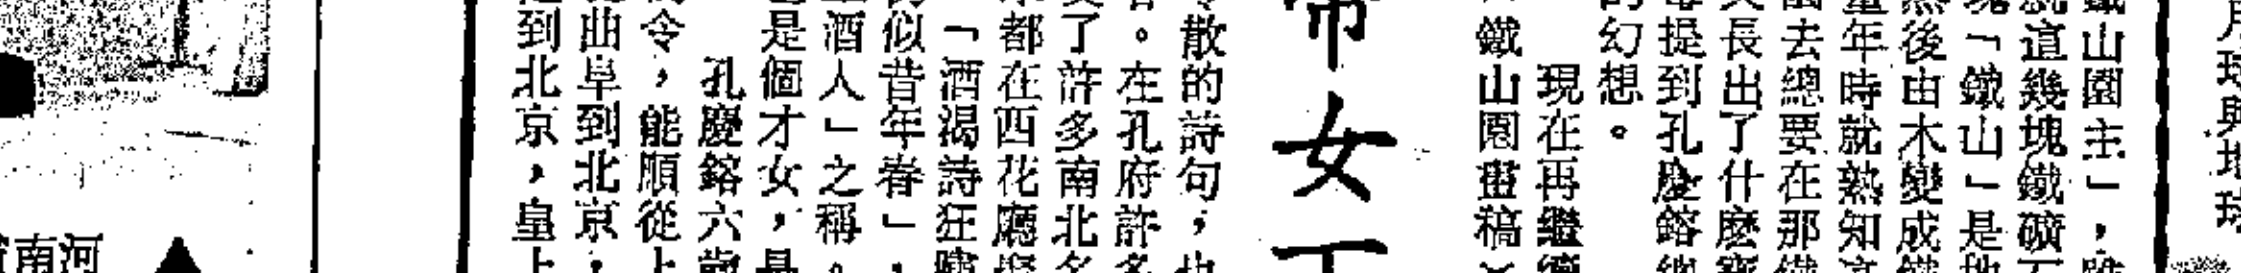 月球與地球
鐵山園主」，
就這幾塊鐵礦石
塊「鐵山」是地
然後由木變成鐵
童年時就熟知
去總要在那
長出了什麼寶
每提到孔慶鎔總
的幻想。
現在再繼續
鐵山園畫稿
帝女下
散的詩句，也
。在孔府許多
了許多南北名
都在西花廳
「酒渴詩狂
似昔年春」，
酒人」之稱。
是個才女，是
孔慶鎔六歲
令，能順從上
曲阜到北京，
到北京，皇上
河南